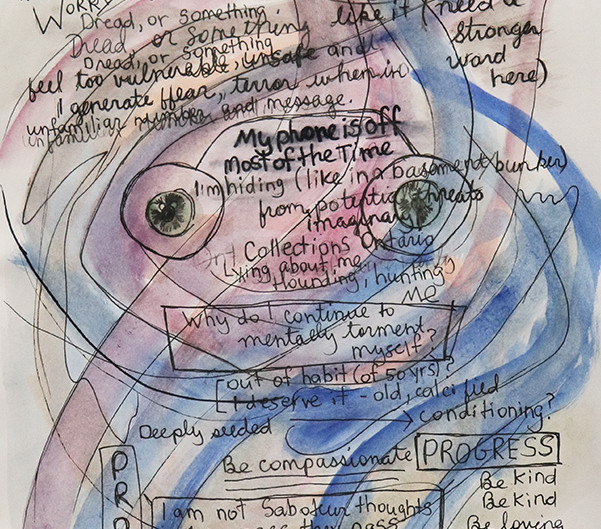 WORRY
Dread, or something.
Dread, or something like it (need a
Dread, or something stronger
feel too vulnerable, unsafe and word
I generate fear, terror when in here)
unfamiliar number and message.
My phone is off
Most of the Time
I'm hiding (like in a basement bunker)
from potential threats
imaginary
Collections Ontario
Lying about me
Hounding, 'hunting'
me
Why do I continue to
mentally torment
myself?
out of habit (of 50 yrs)?
I deserve it - old, calcified
Deeply seeded → conditioning?
Be compassionate PROGRESS
Be Kind
Be Kind
Be loving
P
R
O
I am not
thoughts
they pass